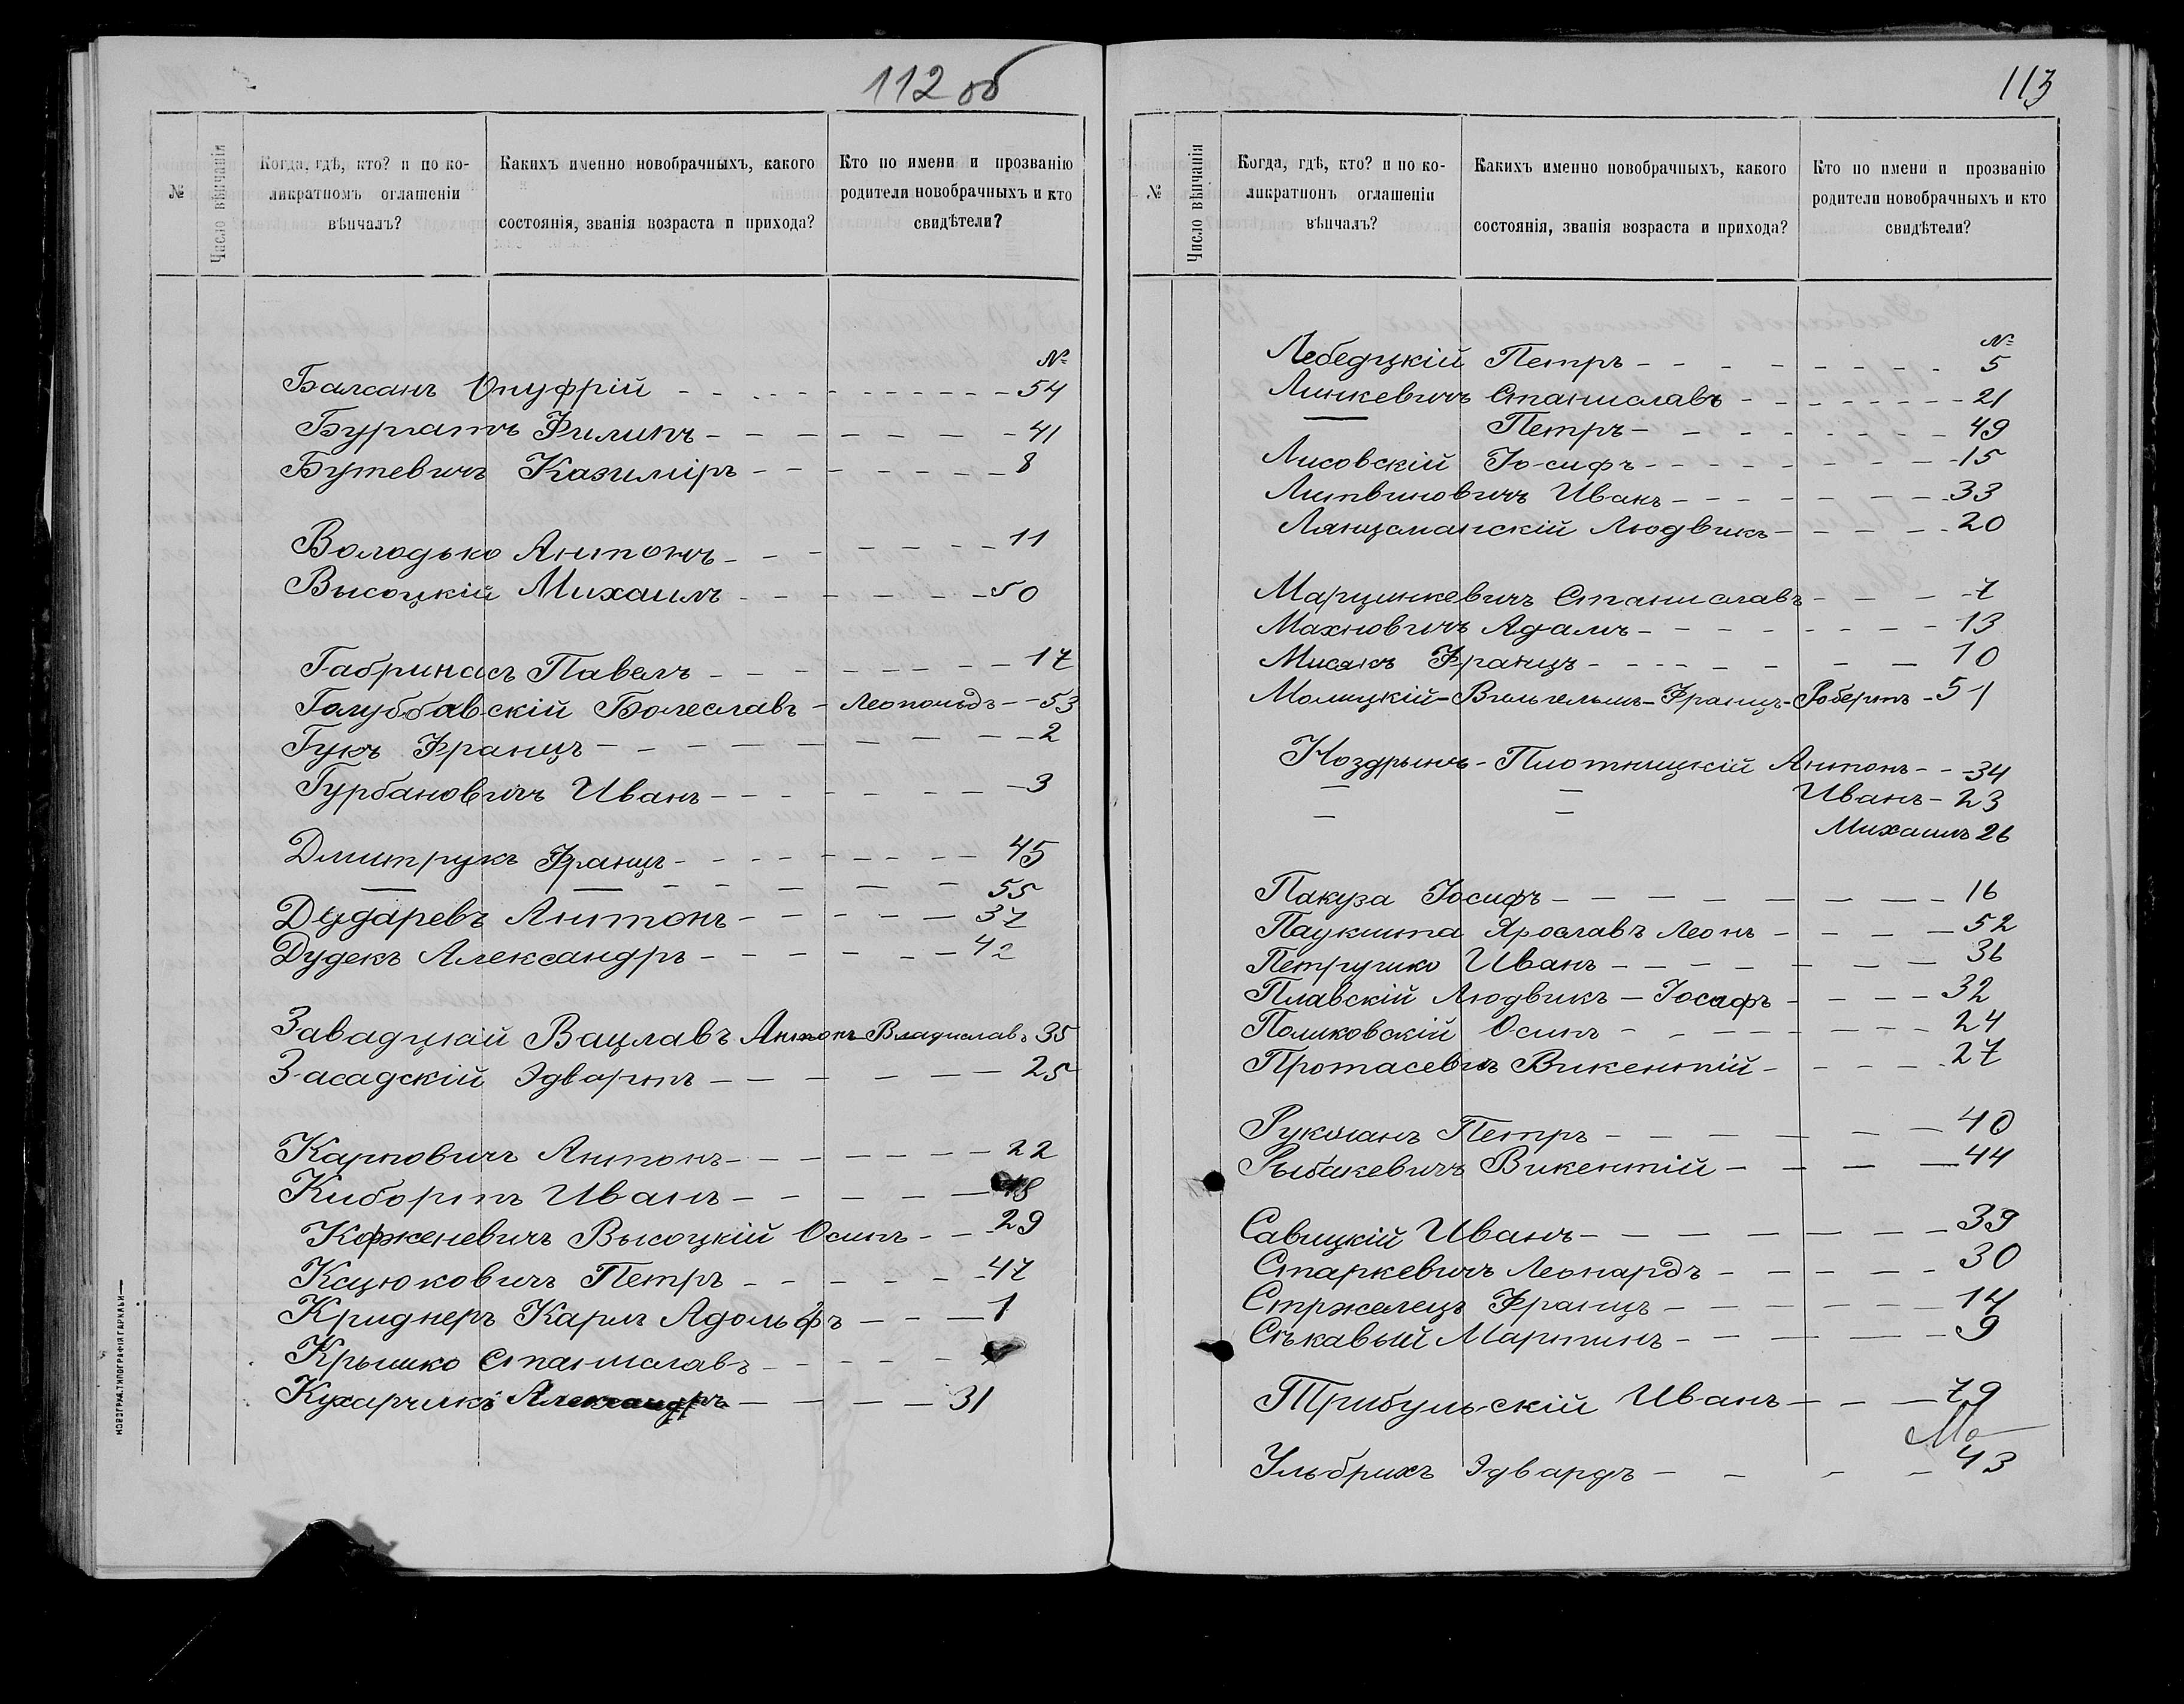 112 об
№
Число вѣнчанія
Когда, гдѣ, кто? и по ко-
ликратномъ оглашеніи
вѣнчалъ?
Какихъ именно новобрачныхъ, какого
состоянія, званія возраста и прихода?
Кто по имени и прозванію
родители новобрачныхъ и кто
свидѣтели?
№
Балсанъ Онуфрій - - - - - - - - - - - 54
Бургатъ Филипъ - - - - - - - 41
Бутевичъ Казиміръ - - - - - - - 8
Володько Антонъ - - - - - - - 11
Высоцкій Михаилъ - - - - - - 50
Габринасъ Павелъ - - - - - - - 17
Голуббовскій Болеславъ - Леопольдъ - - 53
Гукъ Францъ - - - - - - - - - 2
Гурбановичъ Иванъ - - - - - - - 3
Дмитрукъ Францъ - - - - - - - - 45
— — - - - - - - 55
Дударевъ Антонъ - - - - - 37
Дудекъ Александръ - - - - - - 42
Завадцкій Вацлавъ Антонъ-Владиславъ 35
Засадскій Эдвартъ - - - - - - 25
Карповичъ Антонъ - - - - - - - 22
Кибортъ Иванъ - - - - - 18
Корженевичъ Высоцкій Осипъ - - - 29
Кацюковичъ Петръ - - - - - - 47
Криднеръ Карлъ Адольфъ - - - 1
Крышко Станиславъ - - - - -
Кухарчикъ Александръ - - - - - 31
НОВОГРАД. ТИПОГРАФІЯ ГАРКАВЫ
113
№
Число вѣнчанія
Когда, гдѣ, кто? и по ко-
ликратномъ оглашеніи
вѣнчалъ?
Какихъ именно новобрачныхъ, какого
состоянія, званія возраста и прихода?
Кто по имени и прозванію
родители новобрачныхъ и кто
свидѣтели?
№
Лебедцкій Петръ - - - - - - - - 5
Линкевичъ Станиславъ - - - - - - - - 21
— Петръ - - - - - - - - 49
Лисовскій Іосифъ - - - - - - - - 15
Литвиновичъ Иванъ - - - - - - - 33
Лянцманскій Людвикъ - - - - - 20
Марцинкевичъ Станиславъ - - - - 7
Махновичъ Адамъ - - - - - - - - 13
Мисакъ Францъ - - - - - - - - 10
Молицкій-Вильгельмъ-Францъ-Робертъ - 51
Ноздрынъ-Плотницкій Антонъ - - - 34
— — Иванъ - 23
— — Михаилъ 26
Пакуза Іосифъ - - - - - - - - - 16
Паукшта Ярославъ Леонъ - - - - - 52
Петрушко Иванъ - - - - - - - - 36
Плавскій Людвикъ - Іосифъ - - - - - 32
Поликовскій Осипъ - - - - - - - - 24
Протасевичъ Викентій - - - - - 27
Рукманъ Петръ - - - - - - - 40
Рыбакевичъ Викентій - - - - 44
Савицкій Иванъ - - - - - - - - 39
Старкевичъ Леонардъ - - - - - - 30
Стржелецъ Францъ - - - - - - - 14
Скъкавый Мартинъ - - - - - - 9
Трибульскій Иванъ - - - 79
Ульбрихъ Эдвардъ - - - - 43